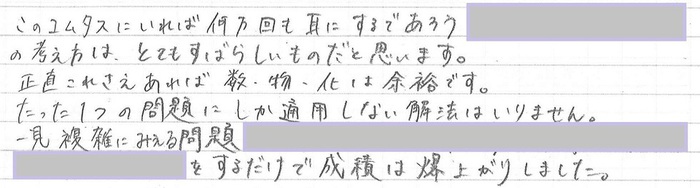 このコムタスにいれば何万回も耳にするであろう
の考え方は、とてもすばらしいものだと思います。
正直これさえあれば数・物・化は余裕です。
たった1つの問題にしか適用しない解法はいりません。
一見複雑にみえる問題
をするだけで成積は爆上がりしました。